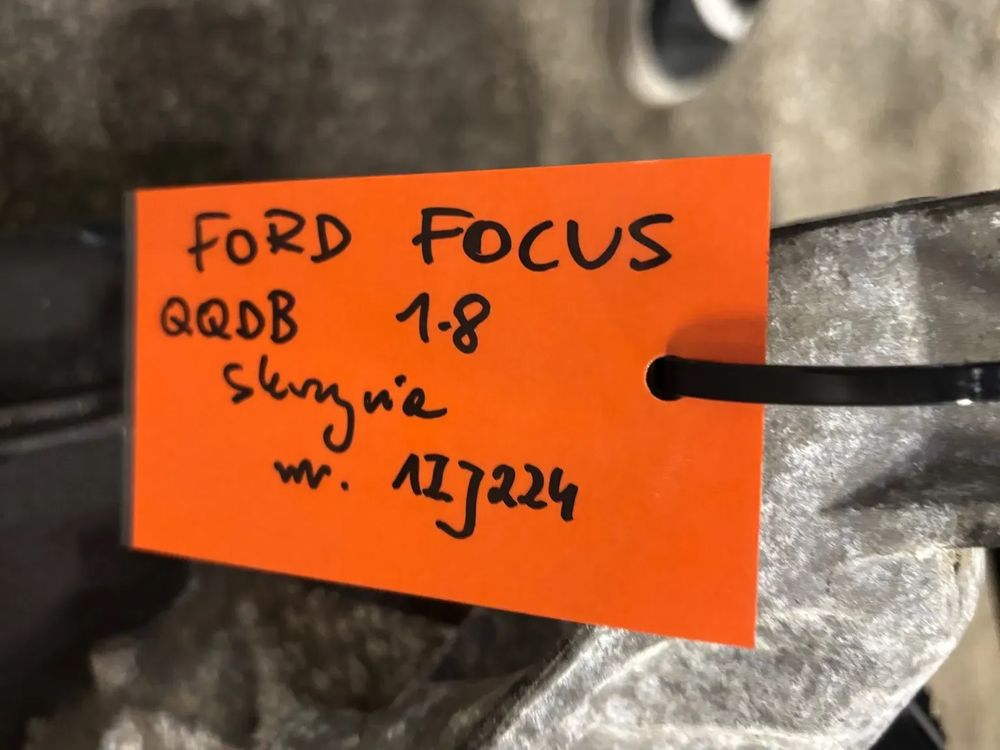 FORD FOCUS
QQDB 1.8
skrzynia
nr. 1IJ224